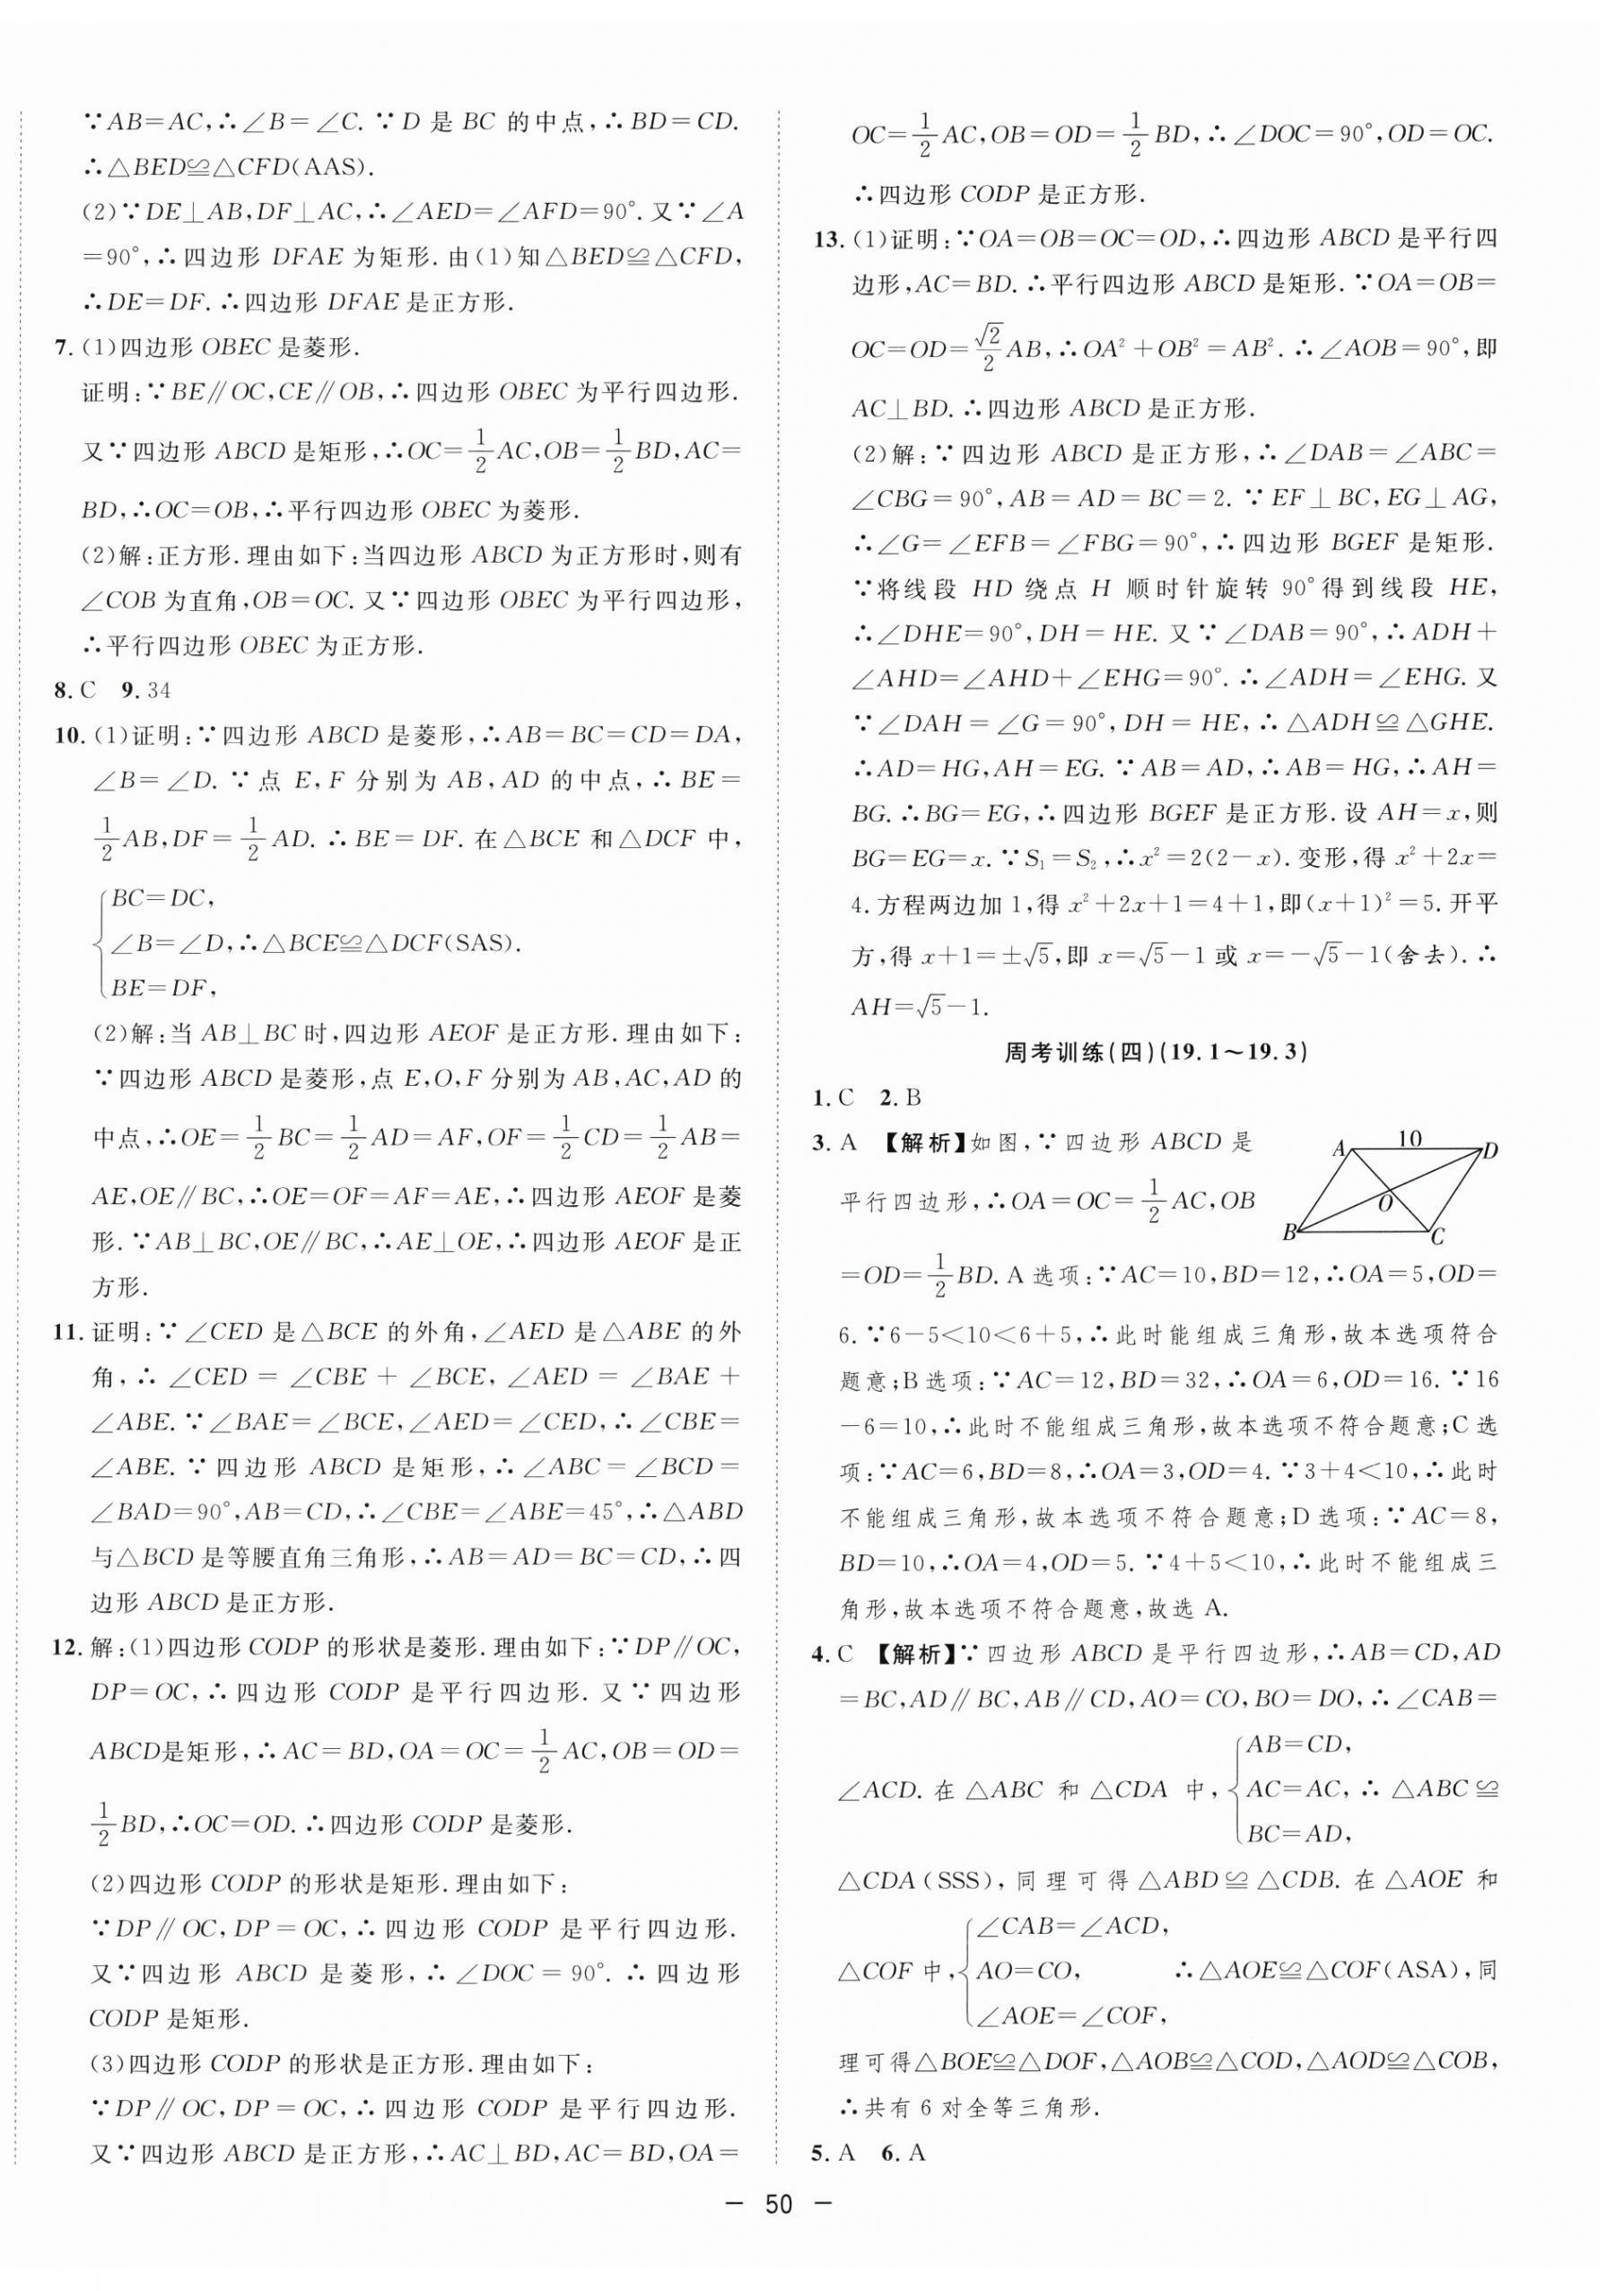 ∵AB=AC,∴∠B=∠C.∵D 是 BC 的中点,∴BD=CD.
∴△BED≌△CFD(AAS).
(2)∵DE⊥AB,DF⊥AC,∴∠AED=∠AFD=90°.又∵∠A
=90°,∴四边形 DFAE 为矩形.由(1)知△BED≌△CFD,
∴DE=DF.∴四边形 DFAE 是正方形.
7.(1)四边形 OBEC 是菱形.
证明:∵BE∥OC,CE∥OB,∴四边形 OBEC 为平行四边形.
又∵四边形 ABCD 是矩形,∴OC=1/2 AC,OB=1/2 BD,AC=
BD,∴OC=OB,∴平行四边形 OBEC 为菱形.
(2)解:正方形.理由如下:当四边形 ABCD 为正方形时,则有
∠COB 为直角,OB=OC.又∵四边形 OBEC 为平行四边形,
∴平行四边形 OBEC 为正方形.
8.C 9.34
10.(1)证明:∵四边形 ABCD 是菱形,∴AB=BC=CD=DA,
∠B=∠D.∵点 E,F 分别为 AB,AD 的中点,∴BE=
1/2 AB,DF=1/2 AD.∴BE=DF.在△BCE 和△DCF 中,
BC=DC,
∠B=∠D,∴△BCE≌△DCF(SAS).
BE=DF,
(2)解:当 AB⊥BC 时,四边形 AEOF 是正方形.理由如下:
∵四边形 ABCD 是菱形,点 E,O,F 分别为 AB,AC,AD 的
中点,∴OE=1/2 BC=1/2 AD=AF,OF=1/2 CD=1/2 AB=
AE,OE∥BC,∴OE=OF=AF=AE,∴四边形 AEOF 是菱
形.∵AB⊥BC,OE∥BC,∴AE⊥OE,∴四边形 AEOF 是正
方形.
11.证明:∵∠CED 是△BCE 的外角,∠AED 是△ABE 的外
角,∴∠CED=∠CBE+∠BCE,∠AED=∠BAE+
∠ABE.∵∠BAE=∠BCE,∠AED=∠CED,∴∠CBE=
∠ABE.∵四边形 ABCD 是矩形,∴∠ABC=∠BCD=
∠BAD=90°,AB=CD,∴∠CBE=∠ABE=45°,∴△ABD
与△BCD 是等腰直角三角形,∴AB=AD=BC=CD,∴四
边形 ABCD 是正方形.
12.解:(1)四边形 CODP 的形状是菱形.理由如下:∵DP∥OC,
DP=OC,∴四边形 CODP 是平行四边形.又∵四边形
ABCD是矩形,∴AC=BD,OA=OC=1/2 AC,OB=OD=
1/2 BD,∴OC=OD.∴四边形 CODP 是菱形.
(2)四边形 CODP 的形状是矩形.理由如下:
∵DP∥OC,DP=OC,∴四边形 CODP 是平行四边形.
又∵四边形 ABCD 是菱形,∴∠DOC=90°.∴四边形
CODP 是矩形.
(3)四边形 CODP 的形状是正方形.理由如下:
∵DP∥OC,DP=OC,∴四边形 CODP 是平行四边形.
又∵四边形 ABCD 是正方形,∴AC⊥BD,AC=BD,OA=
OC=1/2 AC,OB=OD=1/2 BD,∴∠DOC=90°,OD=OC.
∴四边形 CODP 是正方形.
13.(1)证明:∵OA=OB=OC=OD,∴四边形 ABCD 是平行四
边形,AC=BD.∴平行四边形 ABCD 是矩形.∵OA=OB=
OC=OD=√2/2 AB,∴OA²+OB²=AB².∴∠AOB=90°,即
AC⊥BD.∴四边形 ABCD 是正方形.
(2)解:∵四边形 ABCD 是正方形,∴∠DAB=∠ABC=
∠CBG=90°,AB=AD=BC=2.∵EF⊥BC,EG⊥AG,
∴∠G=∠EFB=∠FBG=90°,∴四边形 BGEF 是矩形.
∵将线段 HD 绕点 H 顺时针旋转 90°得到线段 HE,
∴∠DHE=90°,DH=HE.又∵∠DAB=90°,∴ADH+
∠AHD=∠AHD+∠EHG=90°.∴∠ADH=∠EHG.又
∵∠DAH=∠G=90°,DH=HE,∴△ADH≌△GHE.
∴AD=HG,AH=EG.∵AB=AD,∴AB=HG,∴AH=
BG.∴BG=EG,∴四边形 BGEF 是正方形.设 AH=x,则
BG=EG=x.∵S₁=S₂,∴x²=2(2-x).变形,得 x²+2x=
4.方程两边加 1,得 x²+2x+1=4+1,即(x+1)²=5.开平
方,得 x+1=±√5,即 x=√5-1 或 x=-√5-1(舍去).∴
AH=√5-1.
周考训练(四)(19.1~19.3)
1.C 2.B
3.A 【解析】如图,∵四边形 ABCD 是
平行四边形,∴OA=OC=1/2 AC,OB
A 10 D
O
B C
=OD=1/2 BD.A 选项:∵AC=10,BD=12,∴OA=5,OD=
6.∵6-5<10<6+5,∴此时能组成三角形,故本选项符合
题意;B 选项:∵AC=12,BD=32,∴OA=6,OD=16.∵16
-6=10,∴此时不能组成三角形,故本选项不符合题意;C 选
项:∵AC=6,BD=8,∴OA=3,OD=4.∵3+4<10,∴此时
不能组成三角形,故本选项不符合题意;D 选项:∵AC=8,
BD=10,∴OA=4,OD=5.∵4+5<10,∴此时不能组成三
角形,故本选项不符合题意,故选 A.
4.C 【解析】∵四边形 ABCD 是平行四边形,∴AB=CD,AD
=BC,AD∥BC,AB∥CD,AO=CO,BO=DO,∴∠CAB=
AB=CD,
∠ACD.在△ABC 和△CDA 中,AC=AC,∴△ABC≌
BC=AD,
△CDA(SSS),同理可得△ABD≌△CDB.在△AOE 和
∠CAB=∠ACD,
△COF 中,AO=CO, ∴△AOE≌△COF(ASA),同
∠AOE=∠COF,
理可得△BOE≌△DOF,△AOB≌△COD,△AOD≌△COB,
∴共有 6 对全等三角形.
5.A 6.A
— 50 —